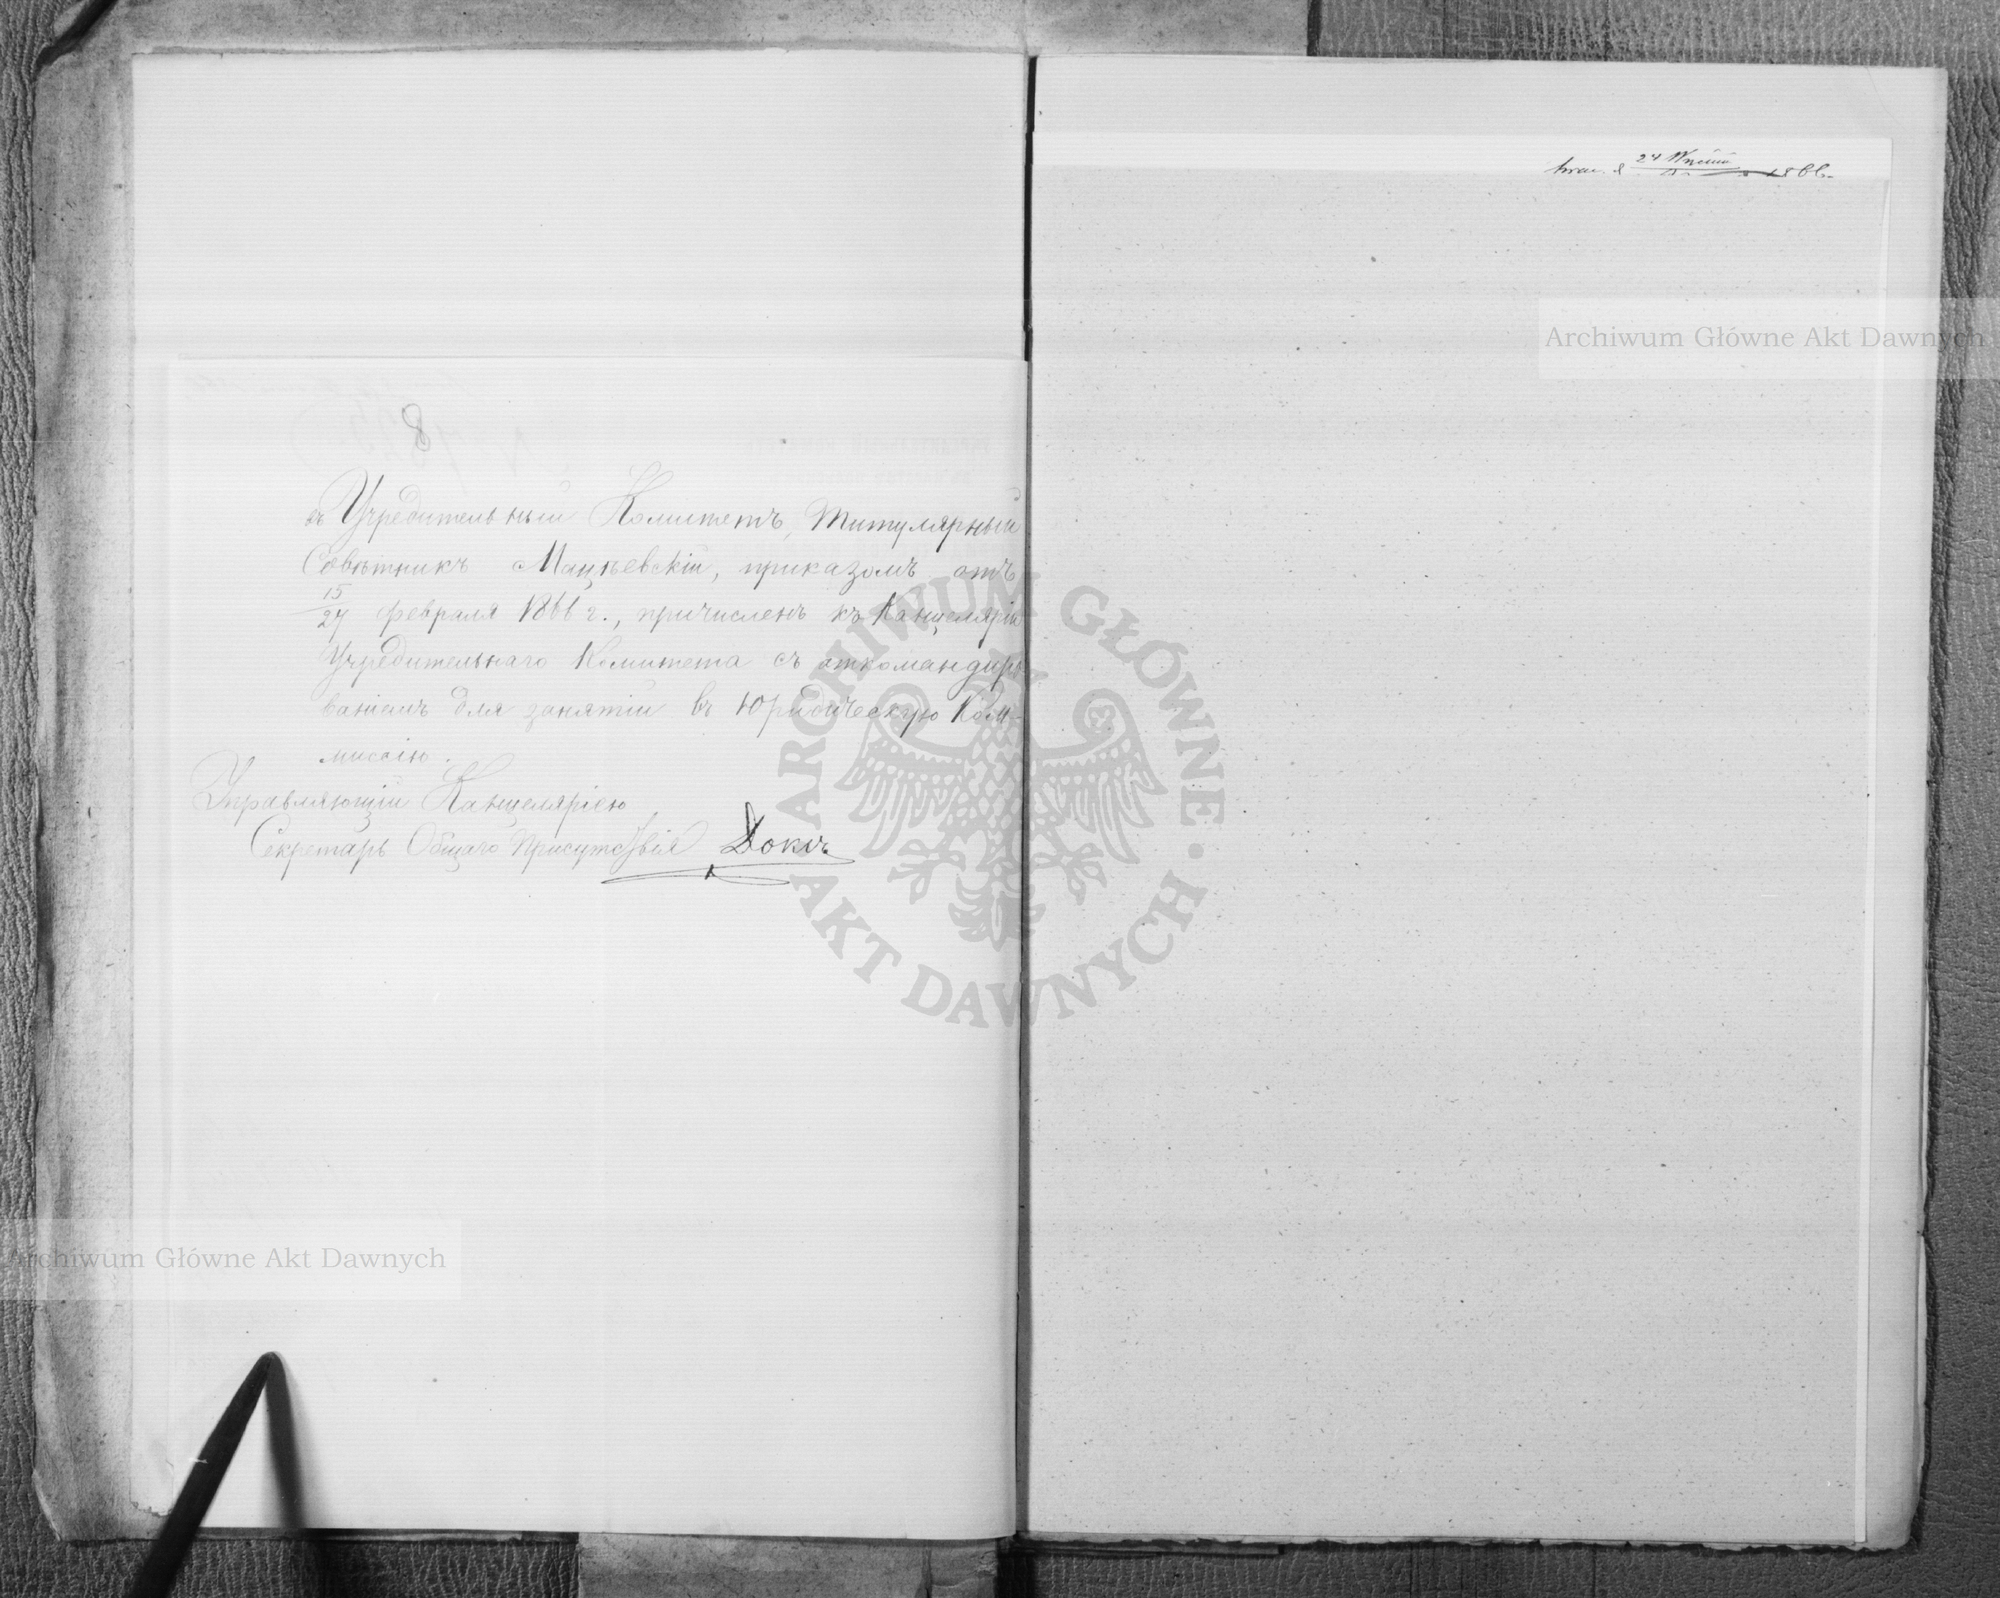 8
въ Учредительный Комитетъ, Титулярный
Совѣтникъ Мацѣевскій, приказомъ отъ
15/27 февраля 1866 г., причисленъ къ Канцеляріи
Учредительнаго Комитета съ откомандиро
ваніемъ для занятій въ Юридическую Ком-
миссію.
Управляющій Канцеляріею
Секретарь Общаго Присутствія
1866.
Archiwum Główne Akt Dawnych
ARCHIWUM GŁÓWNE
AKT DAWNYCH
Archiwum Główne Akt Dawnych